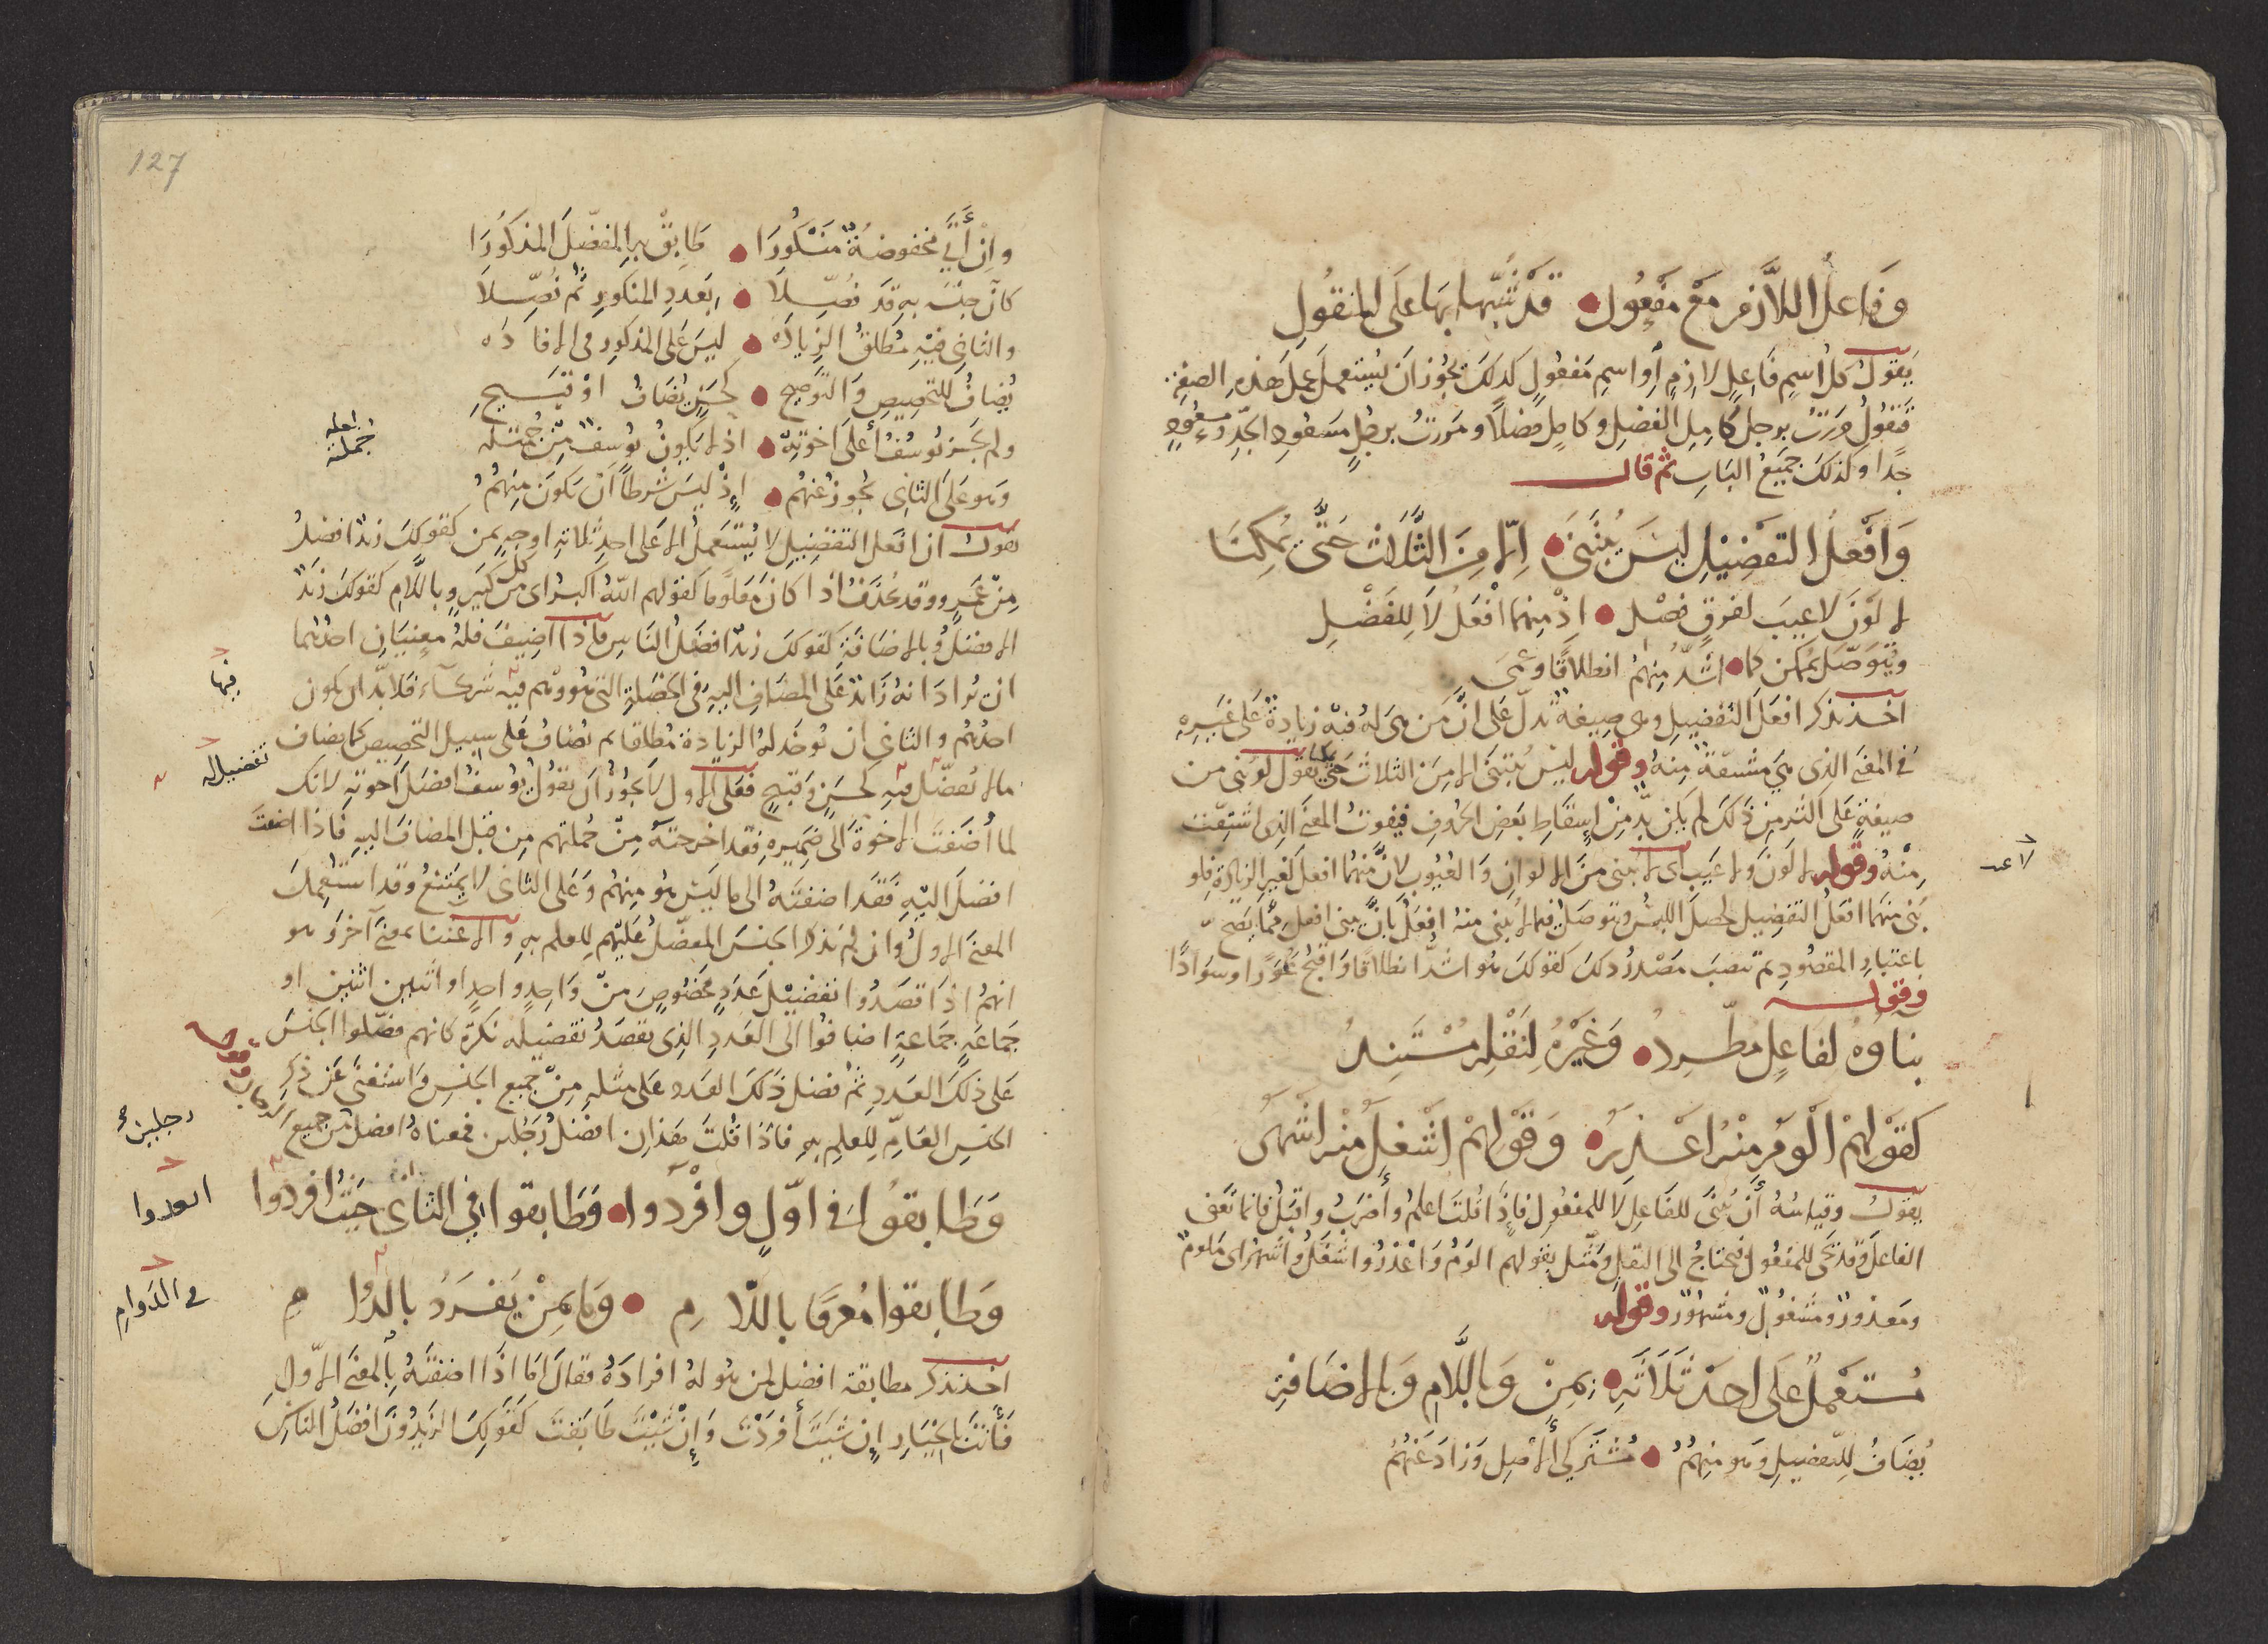 وَفَاعِلُ اللَّازِمِ مَعْ مَفْعُولِ قَدْ نُبِّهَا بِهَا عَلَى المنقُولِ
يَقولُ كل اسمِ فَاعِلٍ لازمٍ أو اسمِ مَفعُولٍ كذلكَ يجُوز اَن يُستعملَ عملَ هَذهِ الصفة
فتقولُ مررتُ برجلٍ كامِلِ الفضلِ وكاملٍ فضلًا ومَررتُ برجُلٍ مسعُودِ الجَدِّ ومسعُودٍ
جَدًا وكذلكَ جميعُ البَابِ ثم قال
وَافْعلُ التفْضِيْلِ ليسَ يُبْنَى اِلّا مِنَ الثَّلَاثِ حَتّى يُمكِنَا
لا لَوْنَ لا عيبَ لفرقٍ فصْل اِذْ مِنهما افْعَلُ لَا لِلفَضْلِ
ويُتَوصّل يُمكن كما اشدُّ مِنهُمُ انطلاقًا وعمَى
اخذ يذكر افعَلَ التفضيلِ وهي صيغةٌ تدلّ عَلى انَّ مَن هيَ لهُ فيه زيادةٌ عَلى غَيرِه
في المعنَى الذي هيَ مشتقّة مِنهُ وقوله ليسَ يُبنَى الا مِنَ الثلاث حتى يمكنا يقول لو بُني من
صيغةٍ عَلى اكثر مِن ذلكَ لم يكن بدّ مِنْ إسقَاطِ بَعضِ الحُروفِ فيفوتُ المعنى الذي اشتقّت
مِنْهُ وقوله لا لَونَ ولا عَيبَ اي لا يبنى منَ الالوانِ وَالعُيُوبِ لانَّ منهُما افعَلَ لغيرِ الزيادة فلو
بُنيَ منهمَا افعَلُ التفضِيلِ لحصلَ اللبسُ وتوصّلَ فيما لا يُبنى منهُ افعَلُ بانْ يبنى افعل مِمّا يَصِحّ
باعتبارِ المقصُودِ ثم تنصبَ مَصْدرُ ذلكَ كقولكَ هُو اشدُّ انطلاقًا وَاقبحُ عَوَرًا وسوَادًا
وقوله
بناوهُ لفَاعِلٍ مطّرِدُ وَغَيْرُهُ لِنَقْلِهِ مُسْتَنِدُ
كقوْلهمْ اَلْومُ مِنْهُ اعْذرُ وَقَوْلهمْ اشْغلُ منْهُ اشْهرُ
يقولُ وقياسُهُ أَن يُبنَى للفَاعِل لا للمفعُولِ فإذَا قلتَ اعلمُ وأضرَبُ واقتلُ فانما تعنى
الفاعلَ وقد بُنيَ للمفعُولِ فيحتاجُ الى النقلِ ومَثّلَ بقولهم الوَمُ وَاعْذرُ وَاشغَلُ وَاشهرُ اي مَلومٌ
ومَعذورٌ ومَشغُولٌ ومَشهُورٌ وقوله
مُستعمَلٌ عَلى احدْ ثَلاثَةِ بِمِنْ وَباللَّامِ وَبِالاضَافَةِ
يُضَافُ لِلتّفضيلِ وَهو مِنهُمُ مُشتَركي الاصلِ وَزادَ عَنْهُمُ
لا عيب
127
وإنْ أَتَى مخفوضُهُ مَنْكُورَا طَابِقْ بهِ المفضّلَ المذكُورَا
كأنّ جنسَه به قد فُصّلَا بعَددِ المنكورِ ثُم فُضّلَا
والثاني فيْهِ مُطلقُ الزِيَادَه ليسَ عَلى المذكورِ في الافَادَه
يُضافُ للتخصِيصِ وَالتّوضِيحِ كحَسَنٍ يُضَافُ أوْ قَبِيحِ
ولم يَجُز يُوسُفُ أعلى اخوتِهْ اذ لا يَكونُ يُوسفٌ مِنْ جُمْلَتِه
وَهو عَلى الثاني يجُوزُ عنهُم إِذْ لَيسَ شَرطًا أَنْ يكونَ مِنهُمُ
يقولُ ان افعَلَ التفضيلِ لا يُستَعملُ الا عَلى احدِ ثلاثةِ اوجهٍ بمن كقولكَ زيدٌ افضلُ
مِنْ عَمرٍو وقد تُحذَفُ اذا كانَ مَعلومًا كقولهم اللهُ اكبرُ اي من كل كَبيرٍ وباللَّامِ كقولكَ زيدٌ
الافضلُ وبالاضَافةِ كقولكَ زيدٌ افضلُ الناسِ فاذا اضيفَ فلهُ معنيَانِ احدُهما
ان يُرادَ انهُ زائدٌ عَلى المضافِ اليهِ في الخصْلةِ التي هُو وهُم فيه شُركاءُ فلا بدّ ان يكون
احدُهُم والثاني ان تُوخذ لهُ الزيادة مُطلقا ثم يُضافُ عَلى سبيلِ التخصِيصِ كما يضاف
مالا تفضّلَ فيهِ كحسَنٍ وقَبيحٍ فعَلى الاولِ لا يجُوزُ أن تقولَ يُوسفُ افضلُ اخوتهِ لانك
لما أضفتَ الاخوةَ الى ضَميرهِ فقد اخرجتَهُ مِنْ جُملتهم مِن قبلِ المضافِ اليهِ فاذا اضفتَ
افضلَ اليْهِ فقَد اضفتَهُ الى ما ليسَ هُو مِنهُم وَعَلى الثاني لا يَمتَنعُ وقد استُعمِلَ
المعنى الاولُ وان لم يذكرُ الجنسَ المفضّلُ عَليْهم لِلعلم بهِ والاعتناء بمعنى آخرَ وهو
انهُم اذَا قصَدُوا تفضيْلَ عَدَدٍ مخصُوصٍ منْ وَاحِدٍ واحدٍ او اثنينِ اثنينِ او
جَمَاعَةٍ جَمَاعَةٍ اضافُوا الى العَددِ الذِي يقصَدُ تفضيلهُ نكرَةً كانهم فصّلوا الجنسَ
عَلى ذلكَ العَدَدِ ثُم فضل ذلكَ العَدد عَلى مثلهِ مِنْ جميعِ الجنسِ وَاستغنَى عَن ذكرِ
الجنسِ العَامّ لِلعلمِ بهِ فاذا قلتَ هَذانِ افضلُ رَجُلين فمعناهُ افضلُ من جميعِ
وَطَابقُوا في اوّلٍ وافْرَدوا وَطَابقوا في الثاني حَيْثُ افردُوا
وَطَابقوا مُعَرَّفًا باللّامِ وَمَا بِمِنْ يَفردُ بالدّوامِ
اخذ يذكر مطابقة افضل لمن هُو لهُ افرادَهُ فقالَ امَّا اذَا اضفتَهُ بالمعنى الاوّلِ
فَأنتَ بالخِيَارِ إن شئتَ أفرَدْتَ وَإنْ شئتَ طَابَقتَ كقَولِكَ الزيدُونَ افضلُ الناسِ
جُملته
فيها
تفضيل له
رجلين
في الدَوامِ